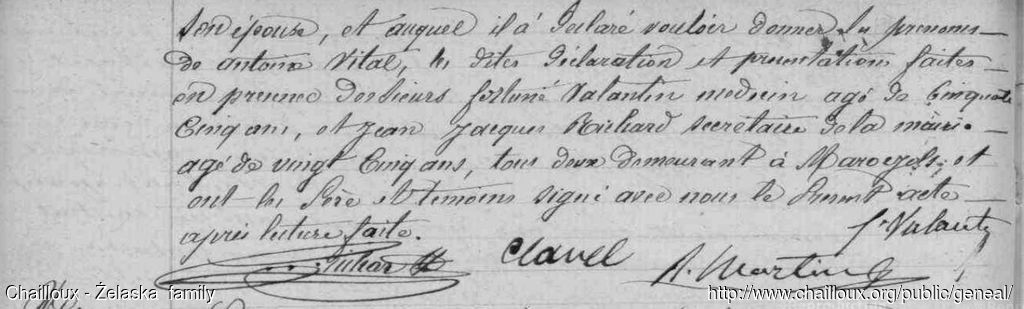 Son épouse, et auquel il a déclaré vouloir donner les prenoms
de antoine Vital, les dites déclaration et presentations faites
en presence des sieurs fortuné Valantin medecin agé de Cinquante
Cinq ans, et jean jacques Richard secretaire de la mairie
agé de vingt Cinq ans, tous deux demeurant à Marvejols, et
ont les Père et temoins signé avec nous le Present acte
après lecture faite.
f. Valantin
Richard
Clavel
A. Martin
Chailloux - Żelaska family
http://www.chailloux.org/public/geneal/